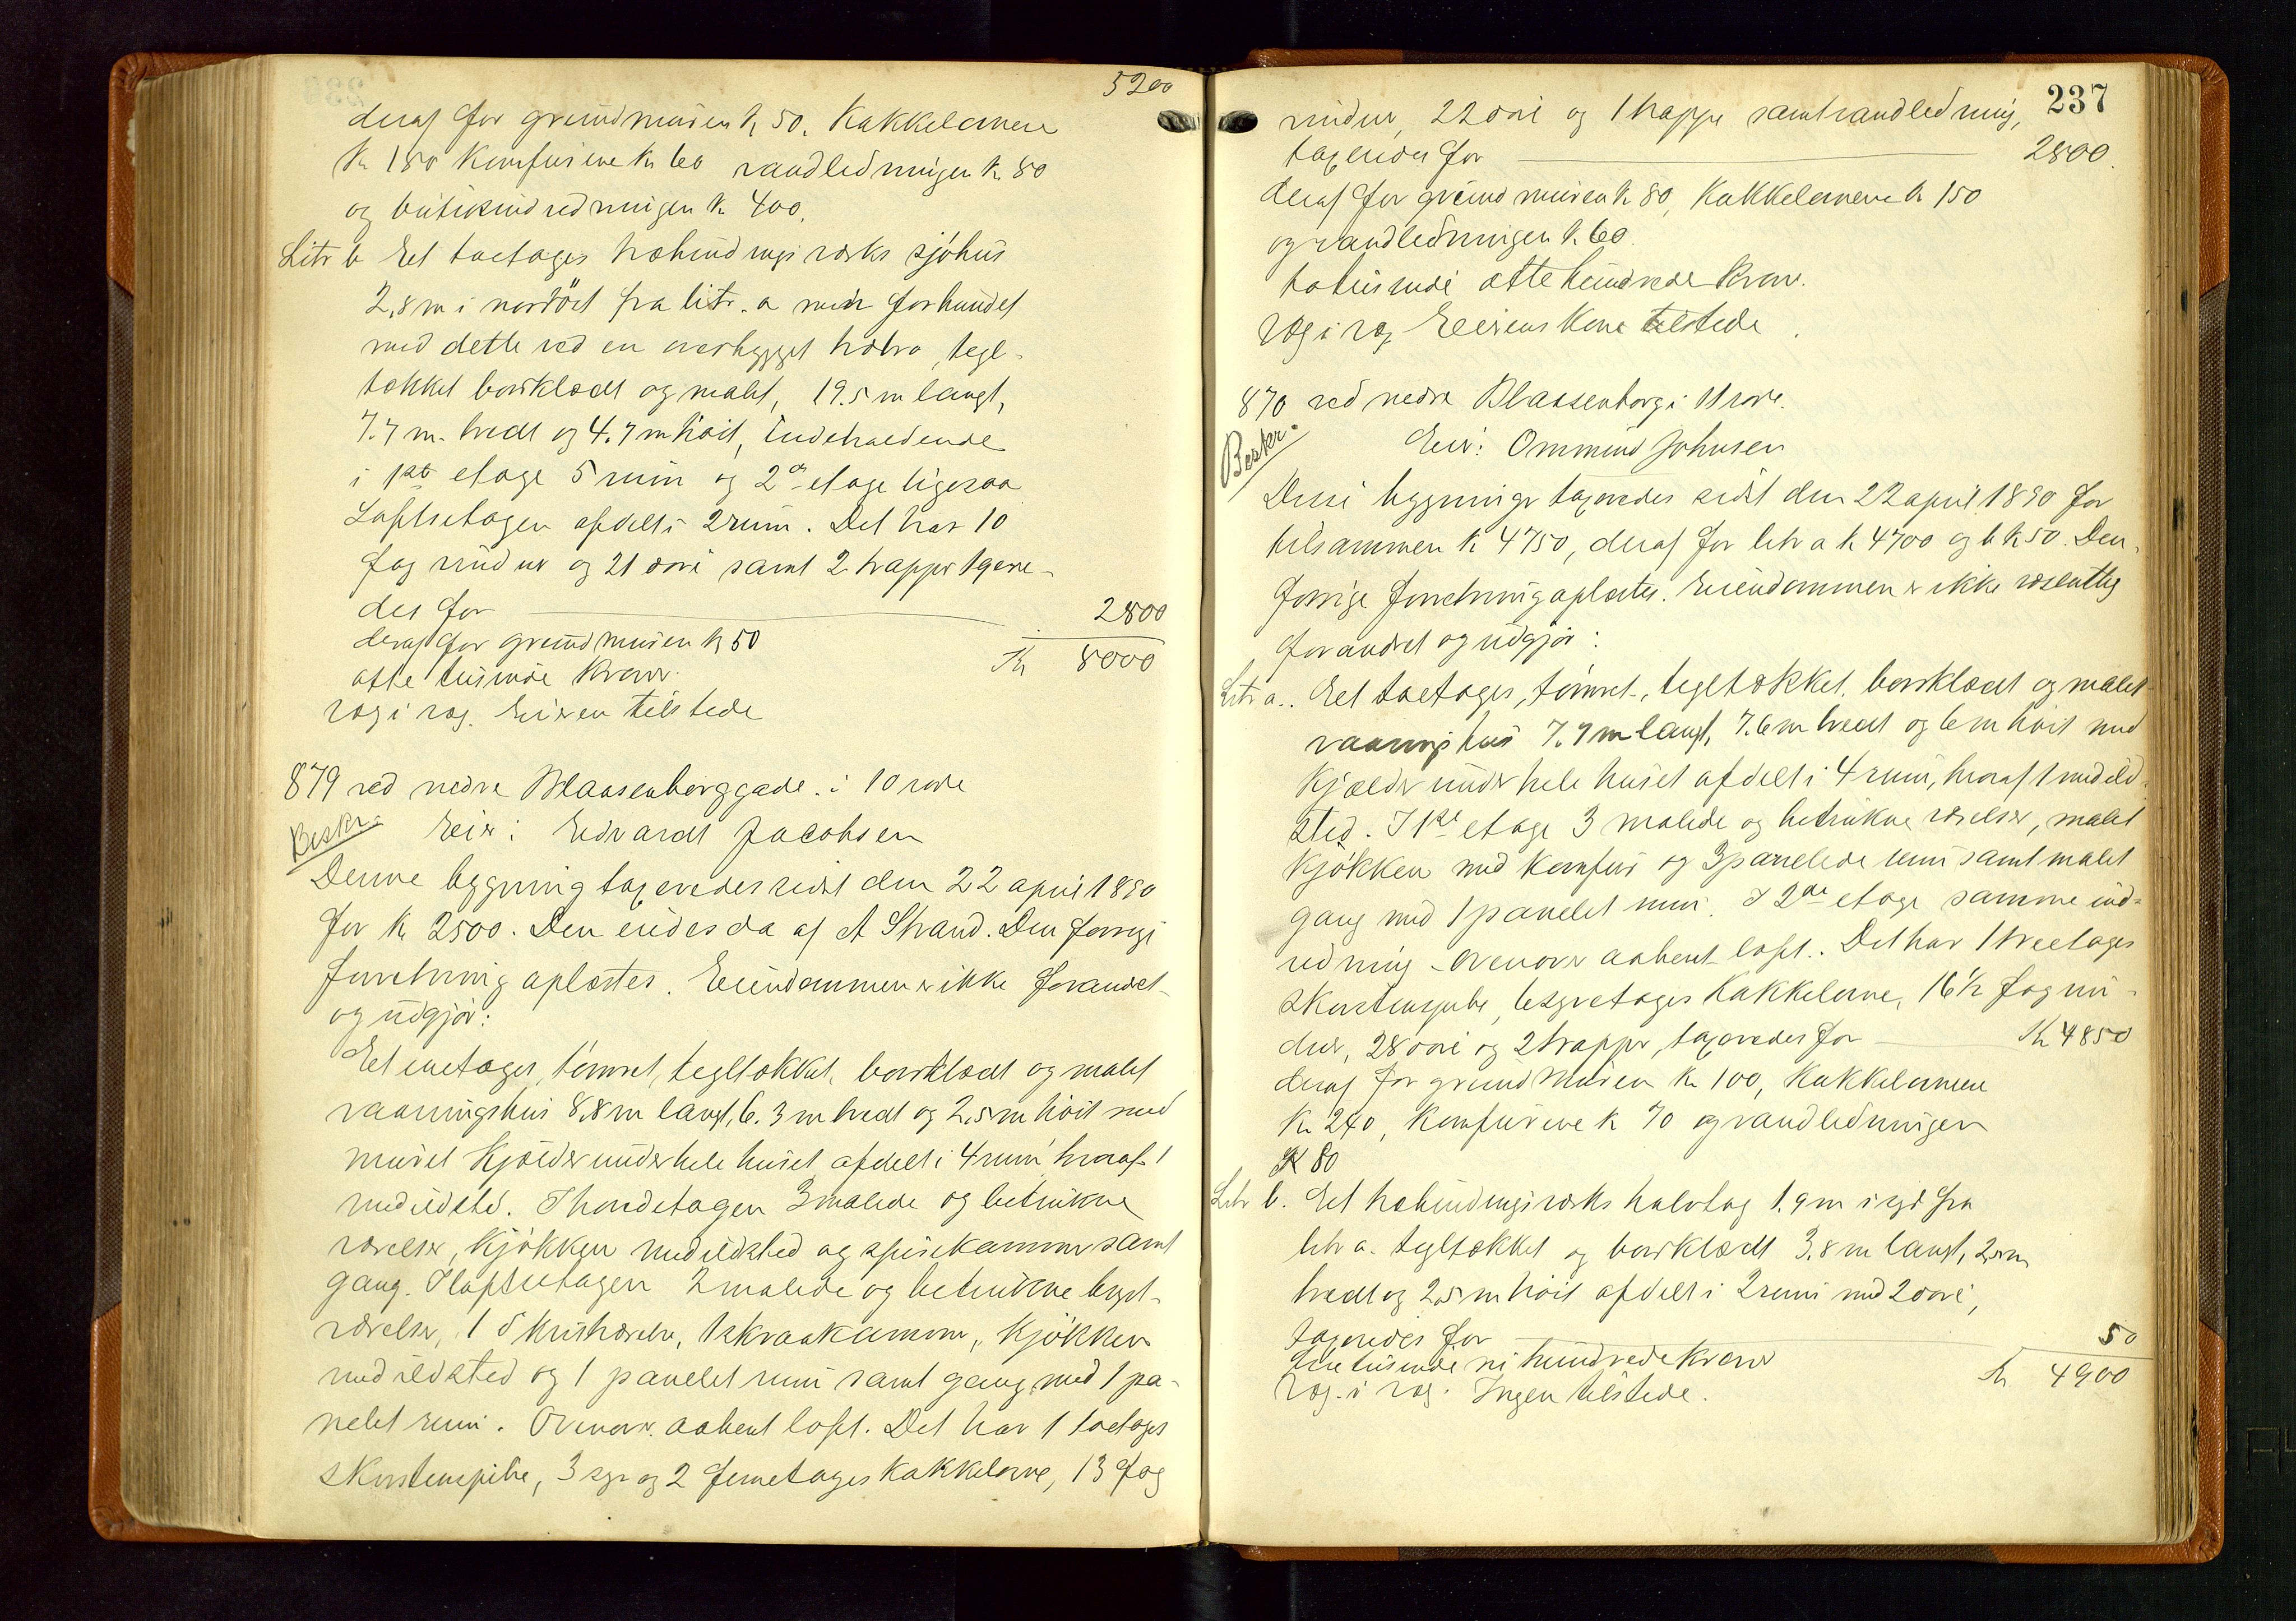 5200
deraf for grundmuren K 50, Kakkelovnene
Kr 180 Komfurene Kr 60 vandledningen Kr 80
og butikindredningen Kr 400,
Litr b Et toetages træbindingsværks sjøhus
2,8 m i nordöst fra litr. a men forbundet
med dette ved en overbygget træbro, tegl-
tækket bordklædt og malet, 19.5 m langt,
7.7 m. bredt og 4.7 m höit, indeholdende
i 1ste etage 5 rum og 2den etage ligesaa
Loftsetagen afdelt i 2 rum. Det har 10
fag vinduer og 21 döre samt 2 trapper taxere-
des for 2800
deraf for grundmuren K 50 Kr 8000
otte tusinde Kroner.
Væg i væg. Eieren tilstede
879 ved nedre Blaasenborggade. i 10 rode
Beskr. Eier: Edvardt Jacobsen
Denne bygning taxeredes sidst den 22 april 1890
for Kr 2500. Den eiedes da af A Strand. Den forrige
forretning oplæstes. Eiendommen er ikke forandret
og udgjør:
Et enetages, tömret, tegltækket, bordklædt og malet
vaaningshus 8,8 m langt, 6.3 m bredt og 2,5 m höit med
muret Kjælder under hele huset afdelt i 4 rum, hvoraf 1
med ildsted. I hovedetagen 3 malede og betrukne
værelser, Kjökken med ildsted og spisekammer samt
gang. I loftsetagen 2 malede og betrukne kvist-
værelser, 1 do Kvistværelse, 1 skraakammer, Kjökken
med ildsted og 1 panelet rum samt gang med 1 pa-
nelet rum. Ovenover aabent loft. Det har 1 toetages
Skorstenspibe, 3 syv og 2 femetages Kakkelovne, 13 fag
237
vinduer, 22 döre og 1 trappe samt vandledning,
taxeredes for 2800.
deraf for grundmuren K 80, Kakkelovnene K 150
og vandledningen K. 60.
totusinde otte hundrede Kroner.
Væg i væg Eierens Kone tilstede.
870 ved nedre Blaasenborg i 11 rode.
Beskr. Eier: Ommund Johnsen
Disse bygninger taxeredes sidst den 22 april 1890 for
tilsammen K 4750, deraf for litr a K 4700 og b K 50. Den
forrige forretning oplæstes. Eiendommen er ikke væsentlig
forandret og udgjør:
Litr a. Et toetages, tömret, tegltækket, bordklædt og malet
vaaningshus 7.7 m langt, 7.6 m bredt og 6 m höit med
Kjælder under hele huset afdelt i 4 rum, hvoraf 1 med ild-
sted. I 1ste etage 3 malede og betrukne værelser, malet
Kjökken med Komfur og 3 panelede rum samt malet
gang med 1 panelet rum. I 2den etage samme ind-
redning. Ovenover aabent loft. Det har 1 treetages
Skorstenspibe, 6 syvetages Kakkelovne, 16½ fag vin-
duer, 28 döre og 2 trapper, taxeredes for Kr 4850
deraf for grundmuren Kr 100, Kakkelovnene
Kr 240, Komfurene K 70 og vandledningen
K 80
Litr b. Et træbindingsværks halvtag 1.9 m i syd fra
litr a. tegltækket og bordklædt 3,8 m langt, 2 m
bredt og 2,5 m höit afdelt i 2 rum med 2 döre,
taxeredes for 50
fire tusinde ni hundrede Kroner Kr 4900
Væg i væg. Ingen tilstede.